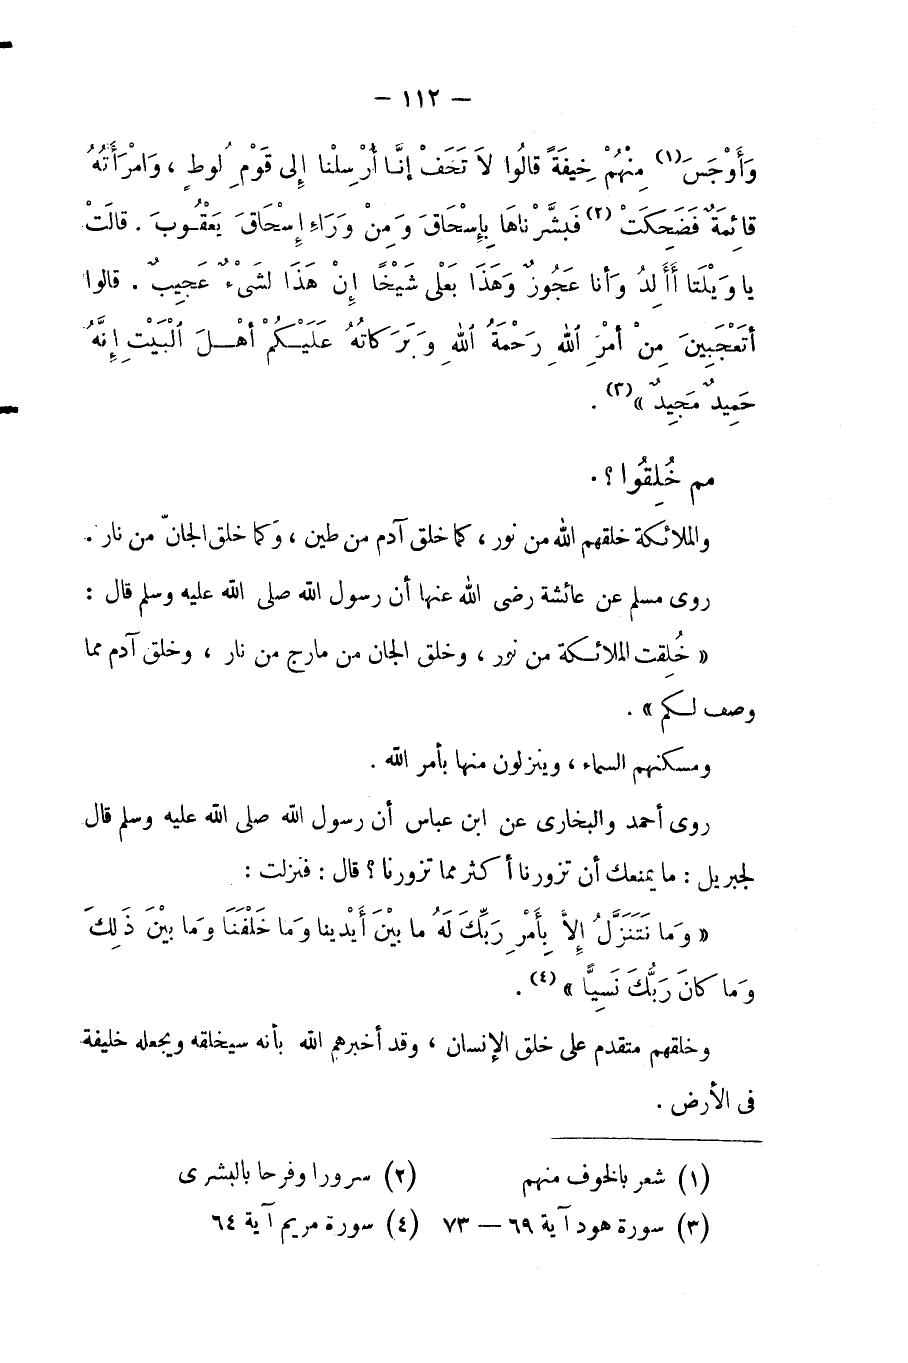 — ١١٢ —
وَأَوْجَسَ(١) مِنْهُمْ خِيفَةً قالُوا لاَ تَخَفْ إنَّا أُرْسِلْنا إِلى قَوْمِ لُوطٍ ، وَامْرَأَتُهُ
قائِمَةٌ فَضَحِكَتْ (٢) فَبَشَّرْناهَا بِإِسْحَاقَ وَمِنْ وَرَاءِ إِسْحَاقَ يَعْقُوبَ . قالَتْ
يا وَيْلَتا أَأَلِدُ وَأَنا عَجُوزٌ وَهَذَا بَعْلِى شَيْخًا إِنْ هَذَا لَشَىْءٌ عَجِيبٌ . قالوا
أَتَعْجَبِينَ مِنْ أَمْرِ اللهِ رَحْمَةُ اللهِ وَبَرَكاتُهُ عَلَيْكُمْ أَهْلَ الْبَيْتِ إِنَّهُ
حَمِيدٌ مَجِيدٌ »(٣) .
مم خُلِقُوا ؟ .
والملائكة خلقهم الله من نور ، كما خلق آدم من طين ، وَكما خلق الجانّ من نار .
روى مسلم عن عائشة رضى الله عنها أن رسول الله صلى الله عليه وسلم قال :
« خُلِقت الملائكة من نور ، وخلق الجان من مارج من نار ، وخلق آدم مما
وصف لكم » .
ومسكنهم السماء ، وينزلون منها بأمر الله .
روى أحمد والبخارى عن ابن عباس أن رسول الله صلى الله عليه وسلم قال
لجبريل : ما يمنعك أن تزورنا أكثر مما تزورنا ؟ قال : فنزلت :
« وَما نَتَنَزَّلُ إِلاَّ بِأَمْرِ رَبِّكَ لَهُ ما بَيْنَ أَيْدِينا وَما خَلْفَنَا وَما بَيْنَ ذَلِكَ
وَما كانَ رَبُّكَ نَسِيًّا » (٤) .
وخلقهم متقدم على خلق الإنسان ، وقد أخبرهم الله بأنه سيخلقه ويجعله خليفة
فى الأرض .
(١) شعر بالخوف منهم (٢) سرورا وفرحا بالبشرى
(٣) سورة هود آية ٦٩ — ٧٣ (٤) سورة مريم آية ٦٤